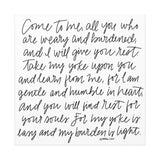 Come to me, all you who
are weary and burdened,
and I will give you rest.
Take my yoke upon you
and learn from me, for I am
gentle and humble in heart,
and you will find rest for
your souls. For my yoke is
easy and my burden is light.